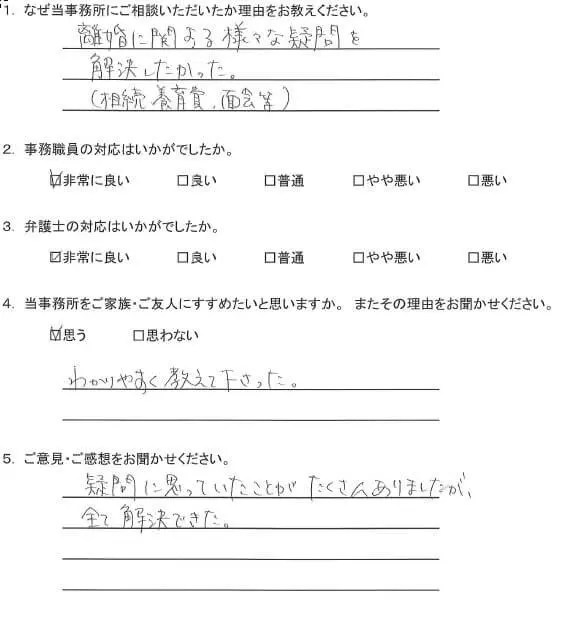 1. なぜ当事務所にご相談いただいたか理由をお教えください。
離婚に関する様々な疑問を
解決したかった。
(相続、養育費、面会等)
2. 事務職員の対応はいかがでしたか。
☑非常に良い □良い □普通 □やや悪い □悪い
3. 弁護士の対応はいかがでしたか。
☑非常に良い □良い □普通 □やや悪い □悪い
4. 当事務所をご家族・ご友人にすすめたいと思いますか。 またその理由をお聞かせください。
☑思う □思わない
わかりやすく教えて下さった。
5. ご意見・ご感想をお聞かせください。
疑問に思っていたことがたくさんありましたが、
全て解決できた。